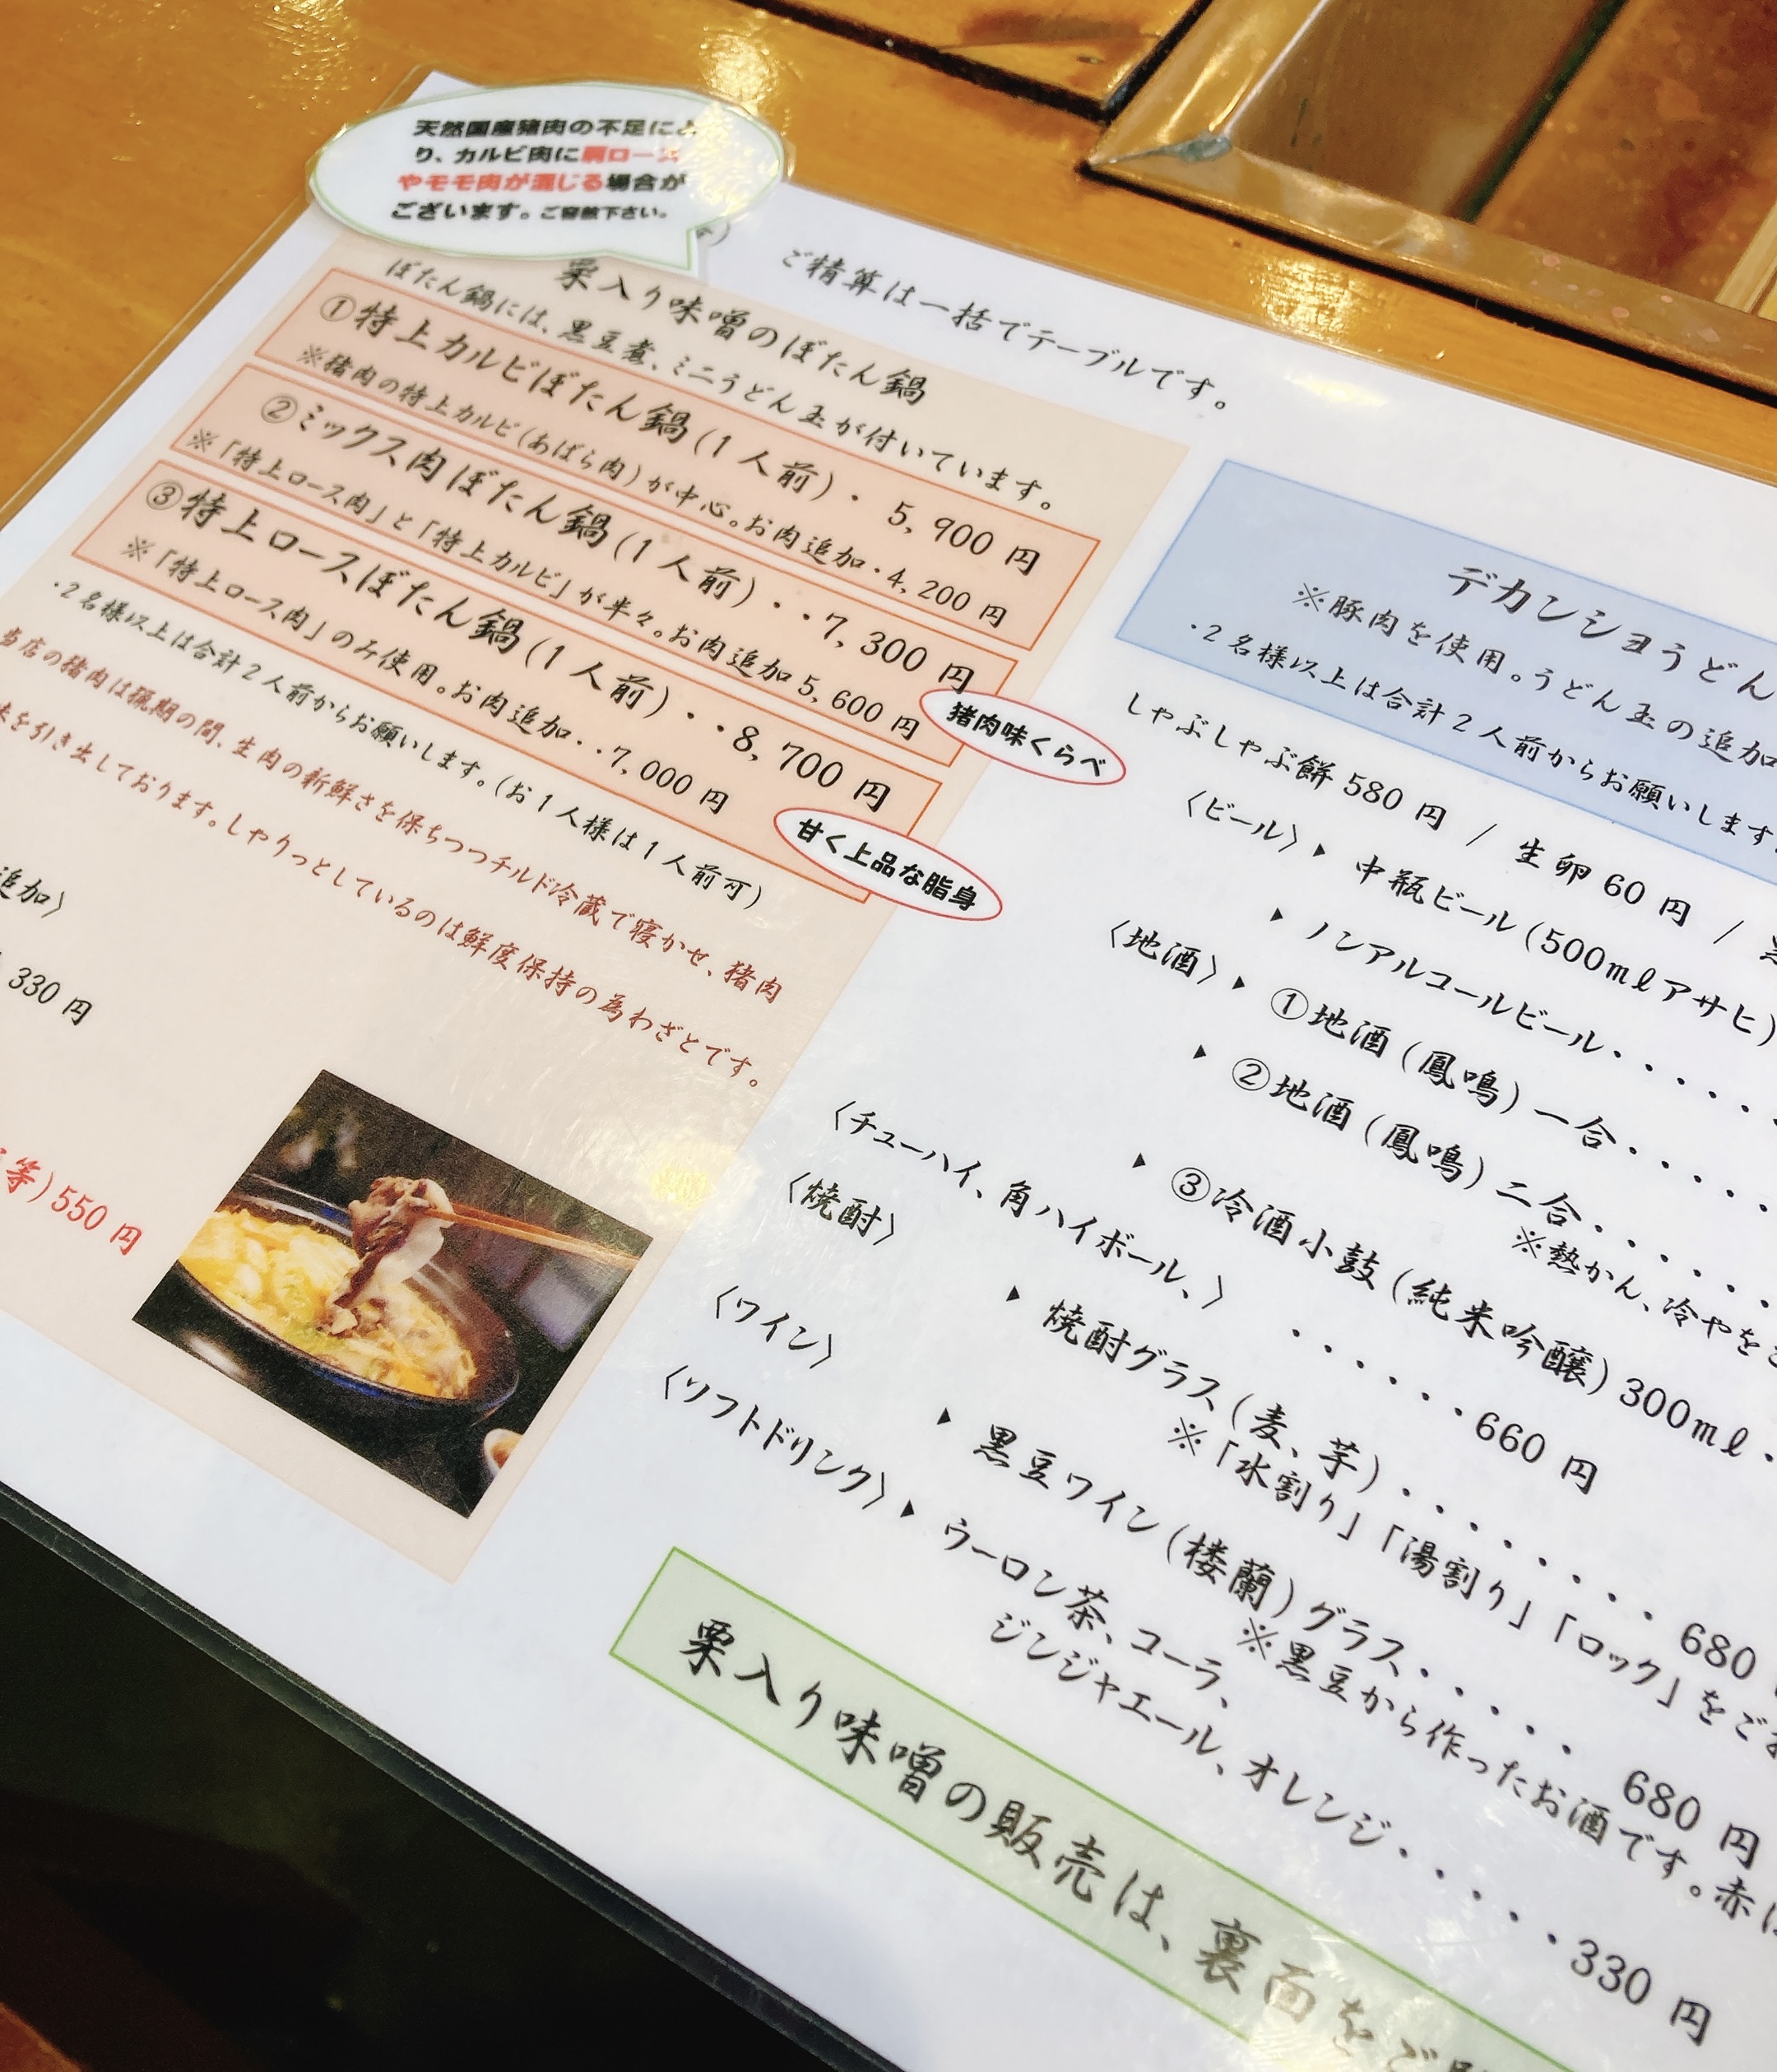 天然国産猪肉の不足によ
り、カルビ肉に肩ロース
やモモ肉が混じる場合が
ございます。ご容赦下さい。
ご精算は一括でテーブルです。
栗入り味噌のぼたん鍋
ぼたん鍋には、黒豆煮、ミニうどん玉が付いています。
①特上カルビぼたん鍋(1人前)・ 5,900円
※猪肉の特上カルビ(あばら肉)が中心。お肉追加・4,200円
②ミックス肉ぼたん鍋(1人前)・・7,300円
※「特上ロース肉」と「特上カルビ」が半々。お肉追加5,600円
猪肉味くらべ
③特上ロースぼたん鍋(1人前)・・8,700円
※「特上ロース肉」のみ使用。お肉追加・・7,000円
甘く上品な脂身
・2名様以上は合計2人前からお願いします。(お1人様は1人前可)
当店の猪肉は猟期の間、生肉の新鮮さを保ちつつチルド冷蔵で寝かせ、猪肉
を引き出しております。しゃりっとしているのは鮮度保持の為わざとです。
追加〉
330円
等)550円
デカンショうどん
※豚肉を使用。うどん玉の追加
・2名様以上は合計2人前からお願いします。
しゃぶしゃぶ餅580円 / 生卵60円 /
〈ビール〉▸ 中瓶ビール(500mlアサヒ)
▸ ノンアルコールビール・・・・・
〈地酒〉▸ ①地酒(鳳鳴)一合・・・・・
▸ ②地酒(鳳鳴)二合・・・・・・
※熱かん、冷やをご
▸ ③冷酒小鼓(純米吟醸)300ml・
〈チューハイ、角ハイボール、〉 ・・・・・・660円
〈焼酎〉 ▸ 焼酎グラス(麦、芋)・・・・・・・・680
※「水割り」「湯割り」「ロック」をご
〈ワイン〉 ▸ 黒豆ワイン(楼蘭)グラス・・・・・ 680円
※黒豆から作ったお酒です。赤
〈ソフトドリンク〉▸ ウーロン茶、コーラ、
ジンジャエール、オレンジ・・・・・・330円
栗入り味噌の販売は、裏面をご